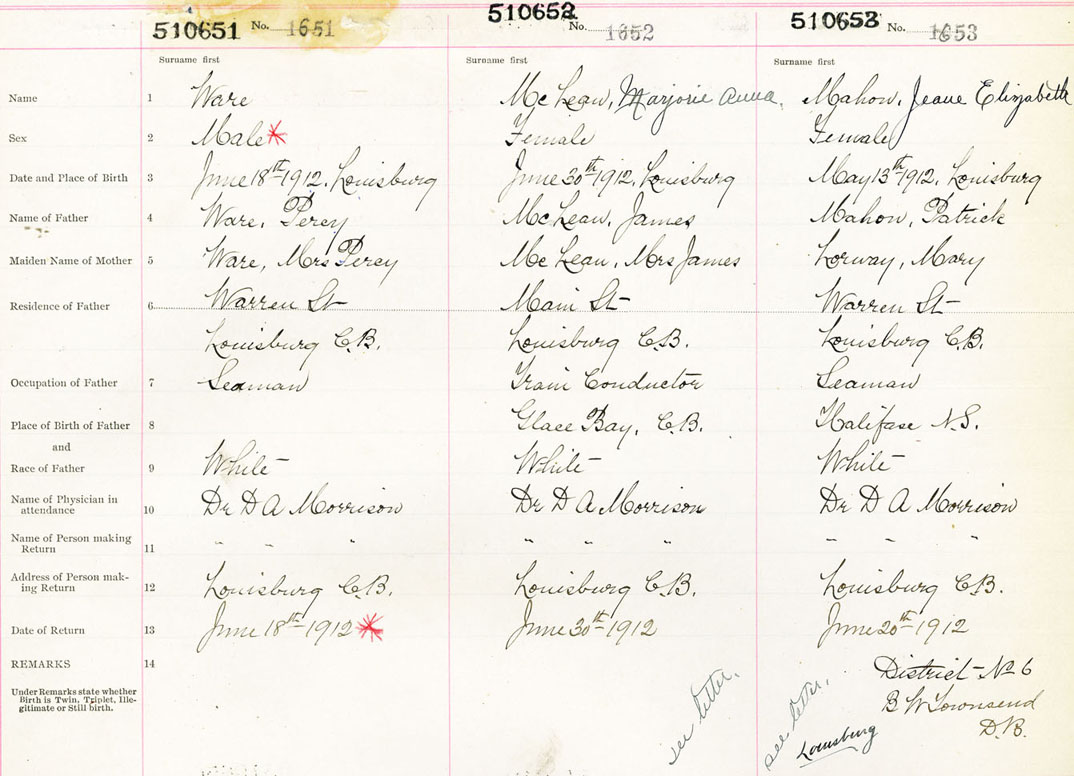 510651 No. 1651 510652 No. 1652 510653 No. 1653
Surname first Surname first Surname first
Name 1 Ware McLean, Marjorie Anna, Mahon, Jeane Elizabeth
Sex 2 Male* Female Female
Date and Place of Birth 3 June 18th 1912, Louisburg June 30th 1912, Louisburg May 13th 1912, Louisburg
Name of Father 4 Ware, Percy McLean, James Mahon, Patrick
Maiden Name of Mother 5 Ware, Mrs Percy McLean, Mrs James Lorway, Mary
Residence of Father 6 Warren St Main St Warren St
Louisburg C.B. Louisburg C.B. Louisburg C.B.
Occupation of Father 7 Seaman Train Conductor Seaman
Place of Birth of Father 8 Glace Bay, C.B. Halifax N.S.
and
Race of Father 9 White White White
Name of Physician in
attendance 10 Dr D A Morrison Dr D A Morrison Dr D A Morrison
Name of Person making
Return 11 " " " " " " " " "
Address of Person mak-
ing Return 12 Louisburg C.B. Louisburg C.B. Louisburg C.B.
Date of Return 13 June 18th 1912* June 30th 1912 June 20th 1912
REMARKS 14 District No 6
Under Remarks state whether
Birth is Twin, Triplet, Ille-
gitimate or Still birth.
B W Townsend
D.R.
see letter.
see letter.
Louisburg